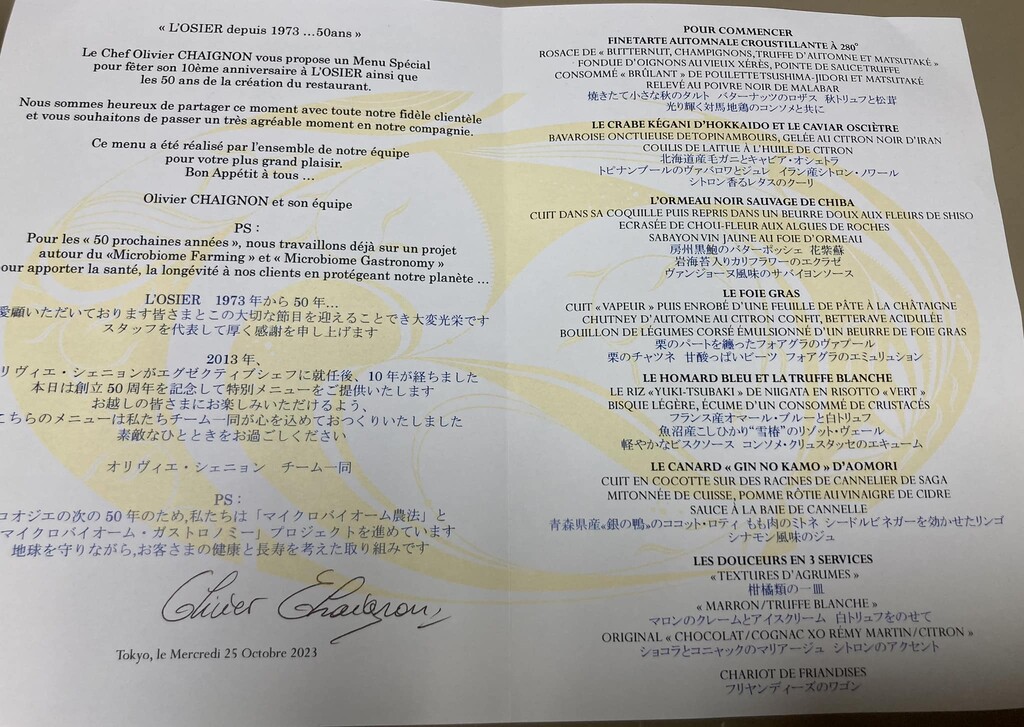 « L'OSIER depuis 1973 …50ans »
Le Chef Olivier CHAIGNON vous propose un Menu Spécial
pour fêter son 10ème anniversaire à L'OSIER ainsi que
les 50 ans de la création du restaurant.
Nous sommes heureux de partager ce moment avec toute notre fidèle clientèle
et vous souhaitons de passer un très agréable moment en notre compagnie.
Ce menu a été réalisé par l'ensemble de notre équipe
pour votre plus grand plaisir.
Bon Appétit à tous …
Olivier CHAIGNON et son équipe
PS :
Pour les « 50 prochaines années », nous travaillons déjà sur un projet
autour du «Microbiome Farming » et « Microbiome Gastronomy »
pour apporter la santé, la longévité à nos clients en protégeant notre planète …
L'OSIER 1973 年から 50 年…
愛顧いただいております皆さまとこの大切な節目を迎えることでき大変光栄です
スタッフを代表して厚く感謝を申し上げます
2013 年、
リヴィエ・シェニョンがエグゼクティブシェフに就任後、10 年が経ちました
本日は創立 50 周年を記念して特別メニューをご提供いたします
お越しの皆さまにお楽しみいただけるよう、
こちらのメニューは私たちチーム一同が心を込めておつくりいたしました
素敵なひとときをお過ごしください
オリヴィエ・シェニョン チーム一同
PS :
ロオジエの次の 50 年のため,私たちは「マイクロバイオーム農法」と
マイクロバイオーム・ガストロノミー」プロジェクトを進めています
地球を守りながら,お客さまの健康と長寿を考えた取り組みです
Olivier Chaignon
Tokyo, le Mercredi 25 Octobre 2023
POUR COMMENCER
FINETARTE AUTOMNALE CROUSTILLANTE À 280°
ROSACE DE « BUTTERNUT, CHAMPIGNONS, TRUFFE D'AUTOMNE ET MATSUTAKÉ »
FONDUE D'OIGNONS AU VIEUX XÉRÈS, POINTE DE SAUCE TRUFFE
CONSOMMÉ « BRÛLANT » DE POULETTE TSUSHIMA-JIDORI ET MATSUTAKÉ
RELEVÉ AU POIVRE NOIR DE MALABAR
焼きたて小さな秋のタルト バターナッツのロザス 秋トリュフと松茸
光り輝く対馬地鶏のコンソメと共に
LE CRABE KÉGANI D'HOKKAIDO ET LE CAVIAR OSCIÈTRE
BAVAROISE ONCTUEUSE DE TOPINAMBOURS, GELÉE AU CITRON NOIR D'IRAN
COULIS DE LAITUE À L'HUILE DE CITRON
北海道産毛ガニとキャビア・オシェトラ
トピナンブールのヴァバロワとジュレ イラン産シトロン・ノワール
シトロン香るレタスのクーリ
L'ORMEAU NOIR SAUVAGE DE CHIBA
CUIT DANS SA COQUILLE PUIS REPRIS DANS UN BEURRE DOUX AUX FLEURS DE SHISO
ECRASÉE DE CHOU-FLEUR AUX ALGUES DE ROCHES
SABAYON VIN JAUNE AU FOIE D'ORMEAU
房州黒鮑のバターポッシェ 花紫蘇
岩海苔入りカリフラワーのエクラゼ
ヴァンジョーヌ風味のサバイヨンソース
LE FOIE GRAS
CUIT « VAPEUR » PUIS ENROBÉ D'UNE FEUILLE DE PÂTE À LA CHÂTAIGNE
CHUTNEY D'AUTOMNE AU CITRON CONFIT, BETTERAVE ACIDULÉE
BOUILLON DE LÉGUMES CORSÉ ÉMULSIONNÉ D'UN BEURRE DE FOIE GRAS
栗のパートを纏ったフォアグラのヴァプール
栗のチャツネ 甘酸っぱいビーツ フォアグラのエミュリュション
LE HOMARD BLEU ET LA TRUFFE BLANCHE
LE RIZ «YUKI-TSUBAKI » DE NIIGATA EN RISOTTO « VERT »
BISQUE LÉGÈRE, ÉCUME D'UN CONSOMMÉ DE CRUSTACÉS
フランス産オマール・ブルーと白トリュフ
魚沼産こしひかり“雪椿”のリゾット・ヴェール
軽やかなビスクソース コンソメ・クリュスタッセのエキューム
LE CANARD « GIN NO KAMO » D'AOMORI
CUIT EN COCOTTE SUR DES RACINES DE CANNELIER DE SAGA
MITONNÉE DE CUISSE, POMME RÔTIE AU VINAIGRE DE CIDRE
SAUCE À LA BAIE DE CANNELLE
青森県産«銀の鴨»のココット・ロティ もも肉のミトネ シードルビネガーを効かせたリンゴ
シナモン風味のジュ
LES DOUCEURS EN 3 SERVICES
« TEXTURES D'AGRUMES »
柑橘類の一皿
« MARRON/TRUFFE BLANCHE »
マロンのクレームとアイスクリーム 白トリュフをのせて
ORIGINAL « CHOCOLAT/COGNAC XO RÉMY MARTIN/CITRON »
ショコラとコニャックのマリアージュ シトロンのアクセント
CHARIOT DE FRIANDISES
フリヤンディーズのワゴン